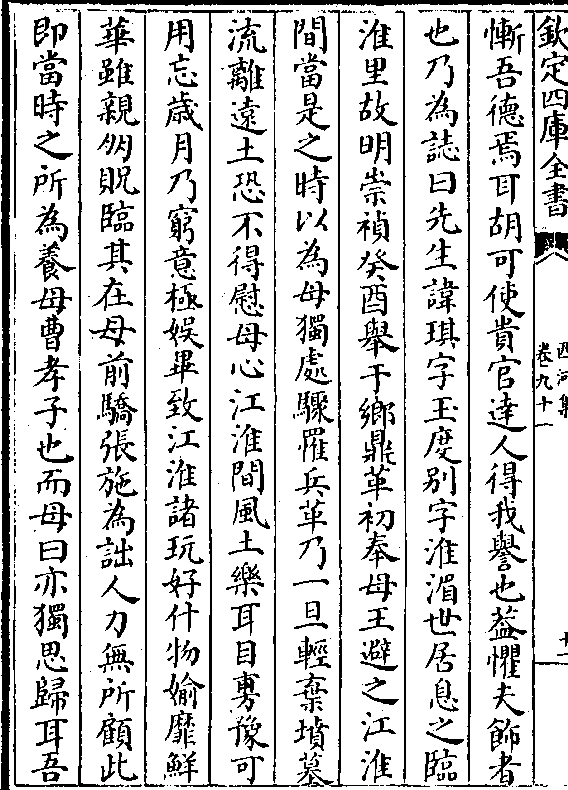 欽定四庫全書
西河集
卷九十一
十二
慚吾德焉耳胡可使貴官達人得我譽也蓋懼夫飾者
也乃為誌曰先生諱琪字玉度别字淮湄世居息之臨
淮里故明崇禎癸酉舉于鄉鼎革初奉母王避之江淮
間當是之時以為母獨處驟罹兵革乃一旦輕棄墳墓
流離遠土恐不得慰母心江淮間風土樂耳目勇豫可
用忘歲月乃窮意極娛畢致江淮諸玩好什物婾靡鮮
華雖親物貺臨其在母前驕張施為詘人力無所顧此
即當時之所為養母曹孝子也而母曰亦獨思歸耳吾